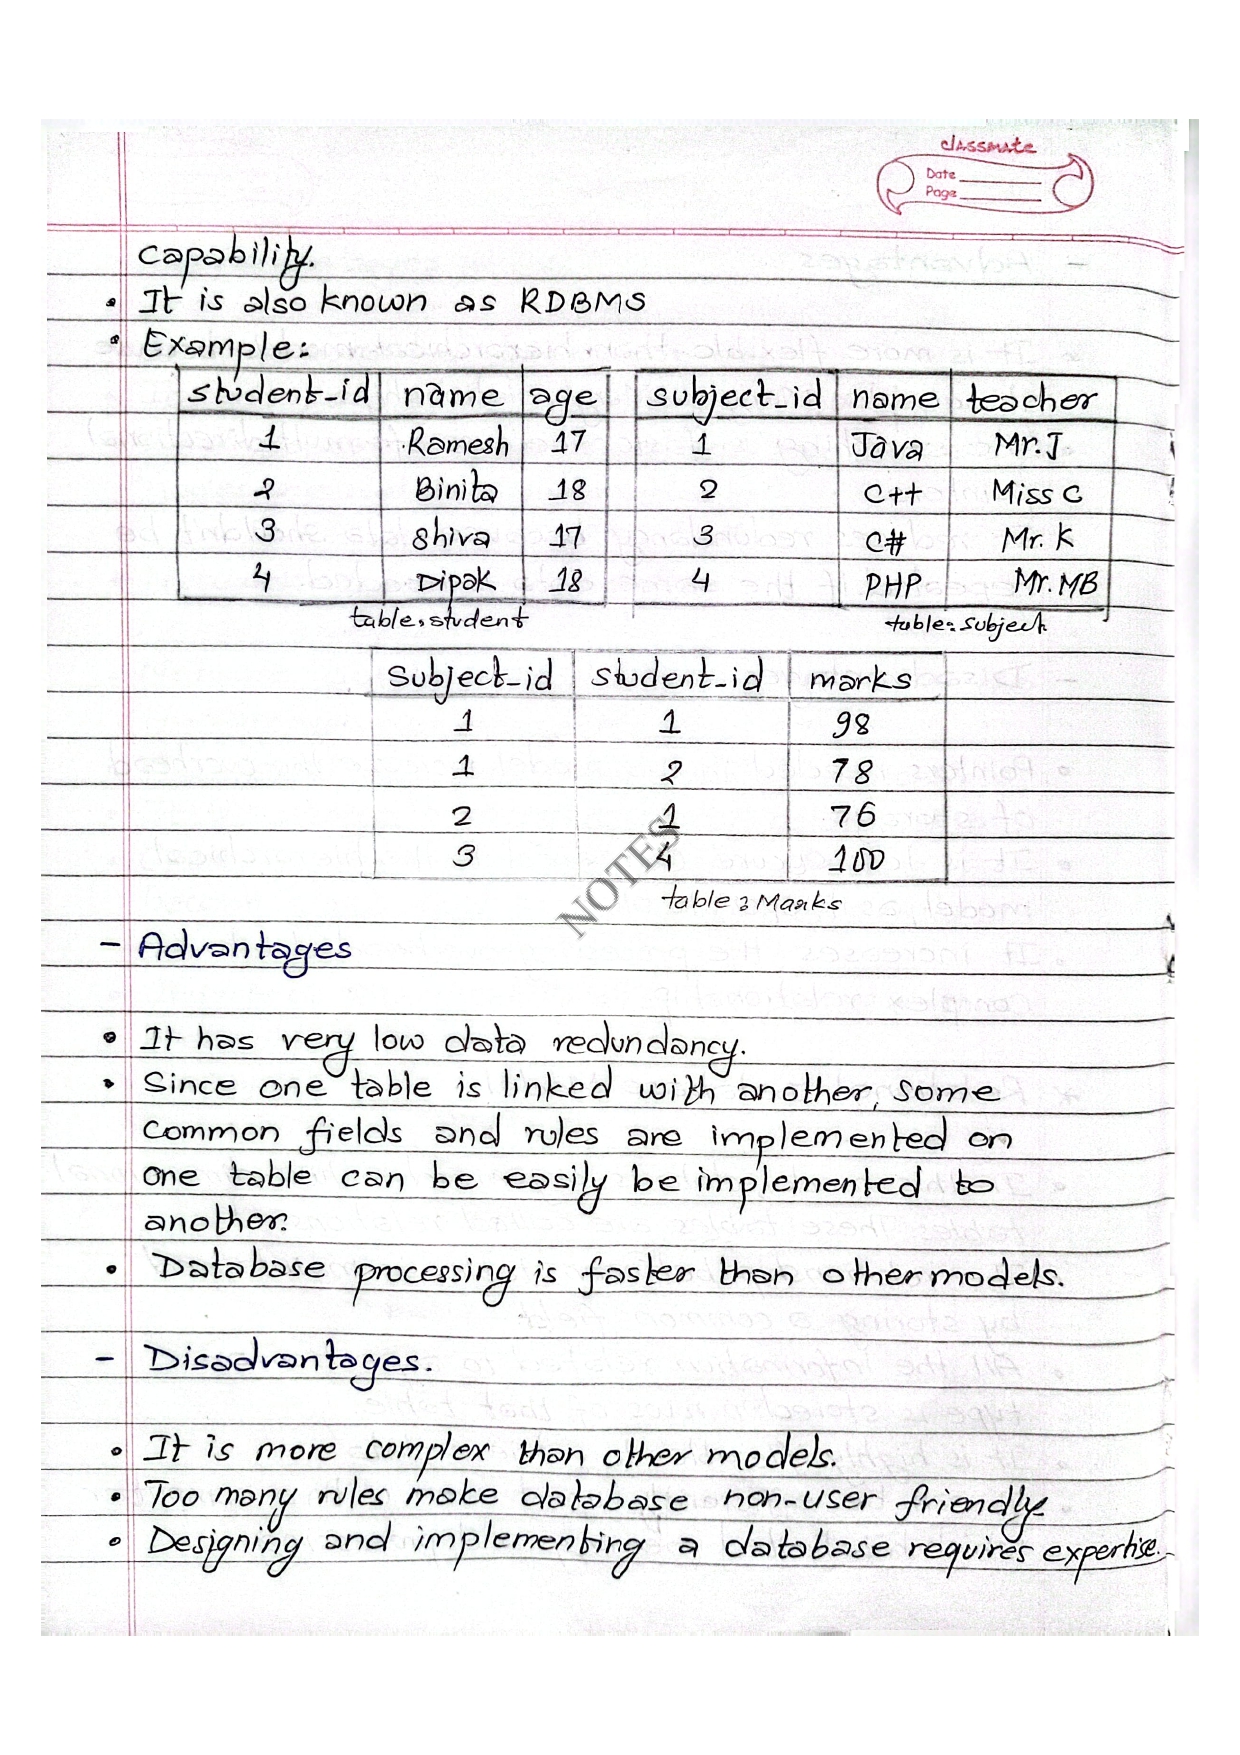 classmate
Date
Page
capability.
• It is also known as RDBMS
• Example:
student_id name age subject_id name teacher
1 Ramesh 17 1 Java Mr.J
2 Binita 18 2 C++ Miss C
3 Shiva 17 3 C# Mr. K
4 Dipak 18 4 PHP Mr.MB
table: student table: Subject
Subject_id student_id marks
1 1 98
1 2 78
2 1 76
3 4 100
table : Marks
NOTES
- Advantages
• It has very low data redundancy.
• Since one table is linked with another, some
common fields and rules are implemented on
one table can be easily be implemented to
another.
• Database processing is faster than other models.
- Disadvantages.
• It is more complex than other models.
• Too many rules make database non-user friendly
• Designing and implementing a database requires expertise.